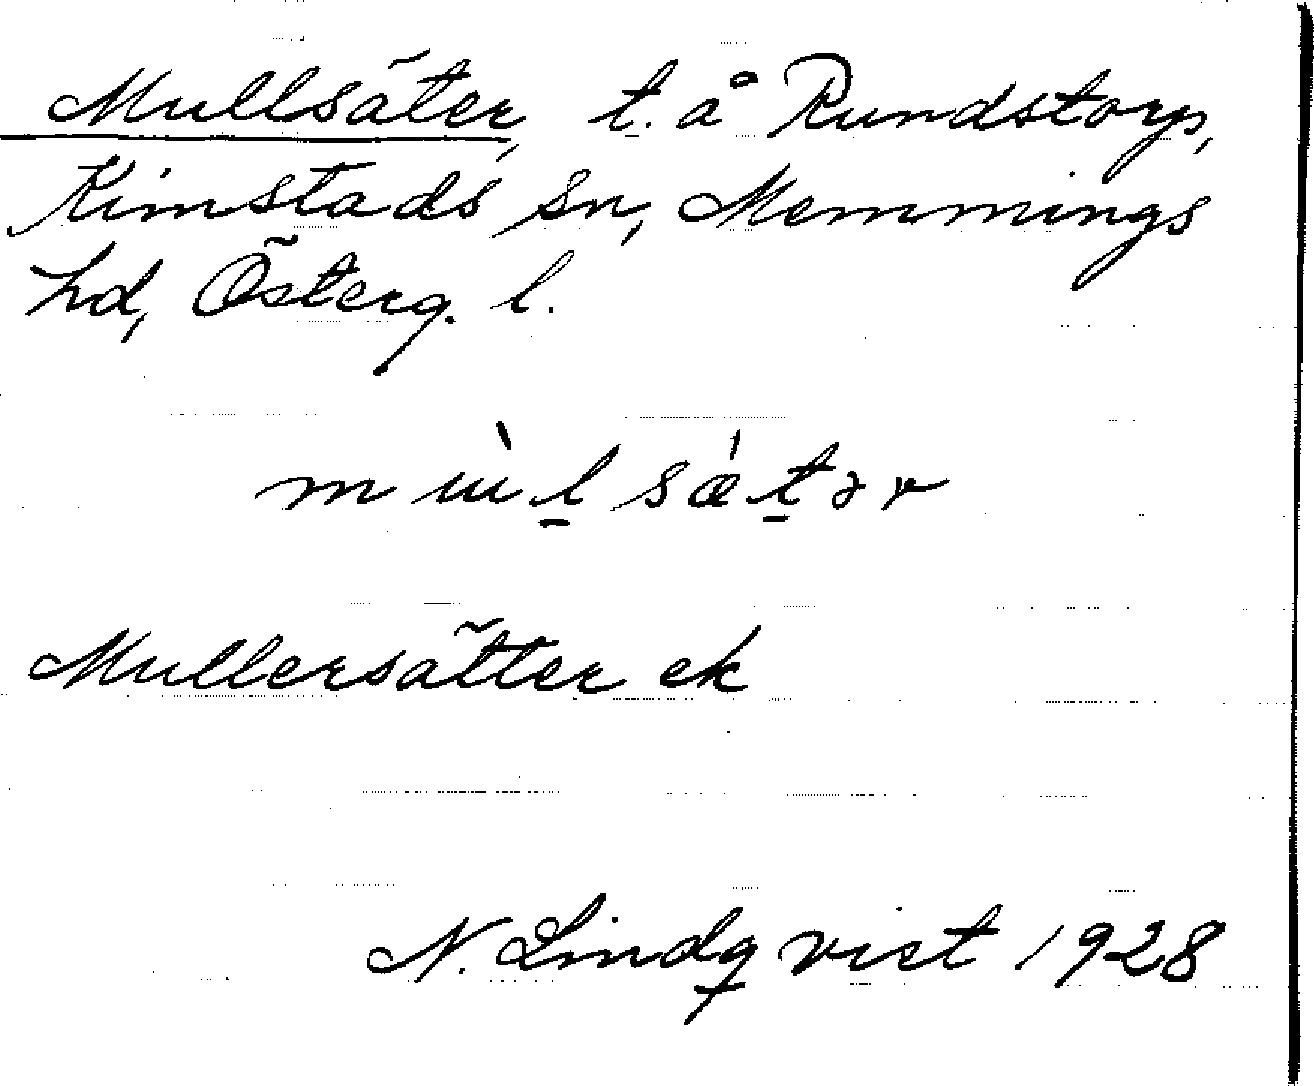 Mullsäter, t. å Rundstorp,
Kimstads sn, Memmings
hd, Österg. l.
mɯ̀l̠sæ̍t̠ər
Mullersätter ek
N. Lindqvist 1928